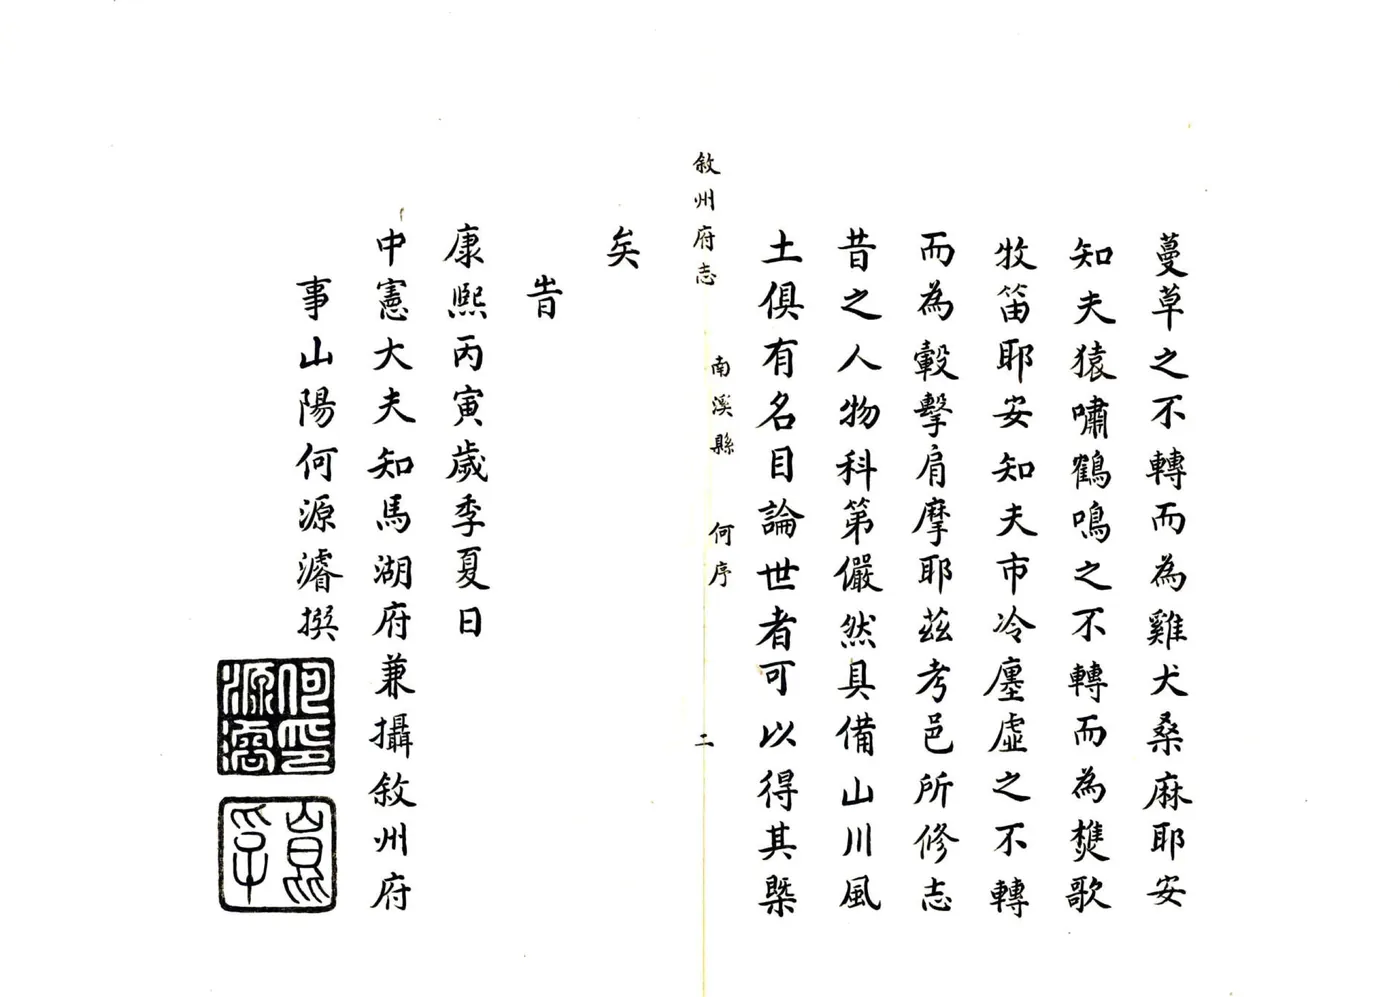 蔓草之不轉而為雞犬桑麻耶安
知夫猿嘯鶴鳴之不轉而為樵歌
牧笛耶安知夫市冷廛虛之不轉
而為轂擊肩摩耶茲考邑所修志
昔之人物科第儼然具備山川風
土俱有名目論世者可以得其槩
敘州府志 南溪縣 何序 二
矣
旹
康熙丙寅歲季夏日
中憲大夫知馬湖府兼攝敘州府
事山陽何源濬撰
何源濬印